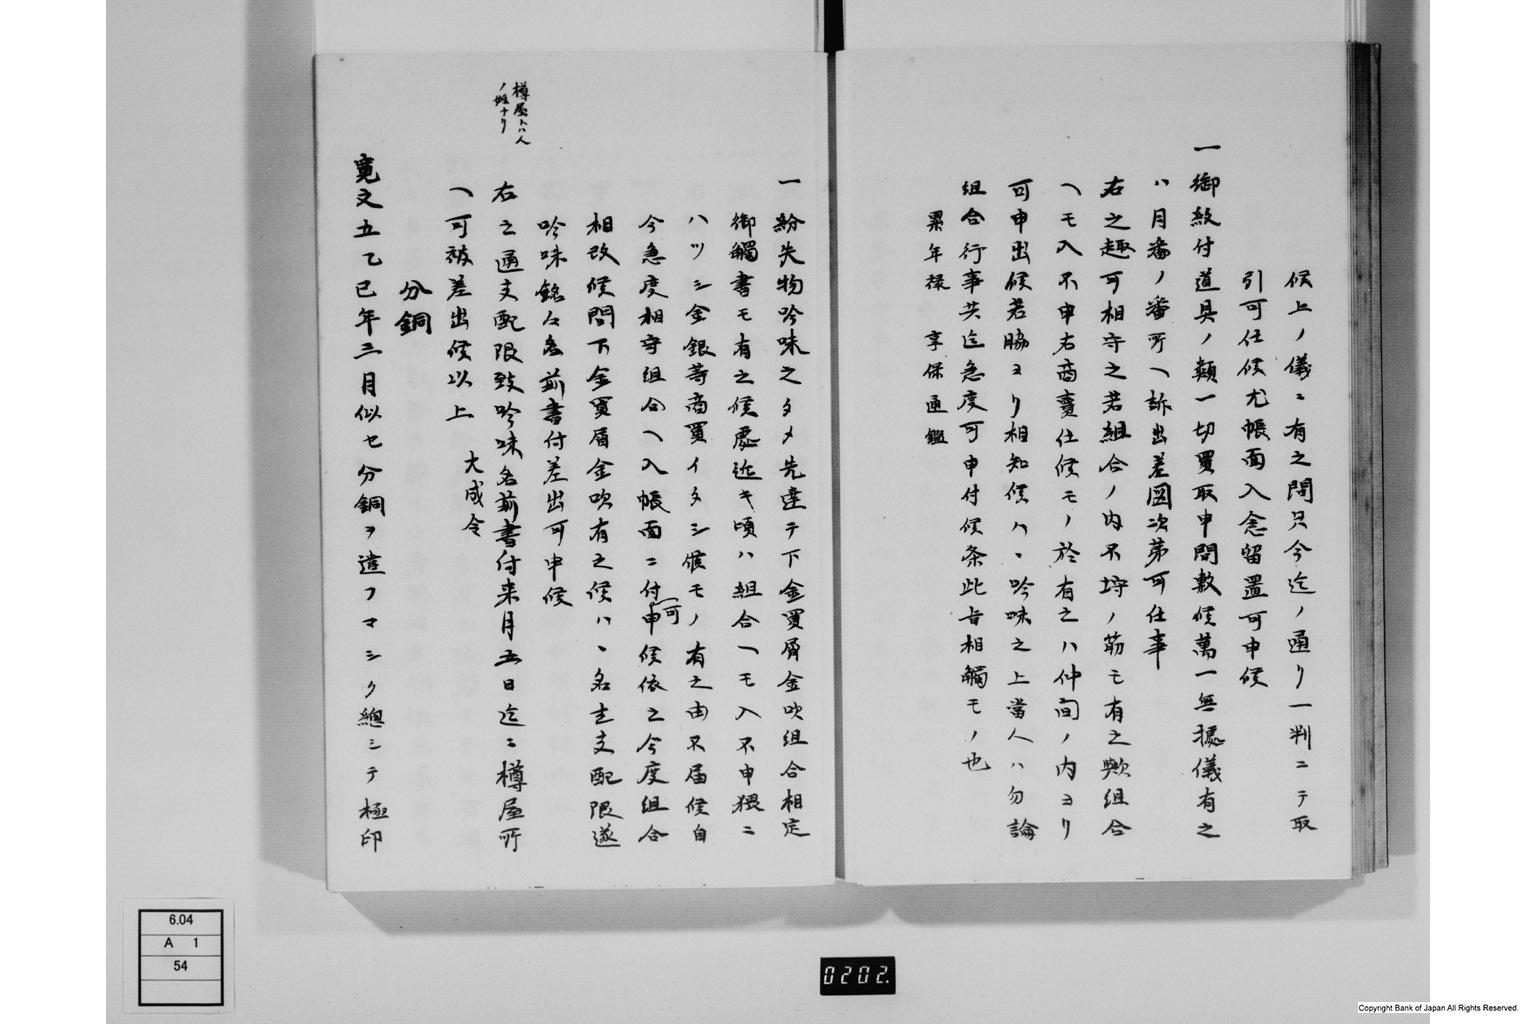 候上ノ儀ニ有之間只今迄ノ通リ一判ニテ取
引可仕候尤帳面入念留置可申候
一御紋付道具ノ類一切買取申間敷候萬一無據儀有之
ハ月番ノ番所ヘ訴出差図次第可仕事
右之趣可相守之若組合ノ内不埒ノ筋モ有之歟組合
ヘモ入不申右商賣仕候モノ於有之ハ仲間ノ内ヨリ
可申出候若脇ヨリ相知候ハヽ吟味之上當人ハ勿論
組合行事共迄急度可申付候条此旨相觸モノ也
累年禄 享保通鑑
一紛失物吟味之タメ先達テ下金買屑金吹組合相定
御觸書モ有之候處近キ頃ハ組合ヘモ入不申猥ニ
ハツシ金銀等商買イタシ候モノ有之由不届候自
今急度相守組合ヘ入帳面ニ付可申候依之今度組合
相改候間下金買屑金吹有之候ハヽ名主支配限遂
吟味銘々名前書付差出可申候
右之通支配限致吟味名前書付来月五日迄ニ樽屋所
ヘ可被差出候以上
大成令
樽屋トハ人
ノ姓ナリ
分銅
寛文五乙巳年三月似セ分銅ヲ遣フマシク總シテ極印
6.04
A 1
54
0202.
Copyright Bank of Japan All Rights Reserved.